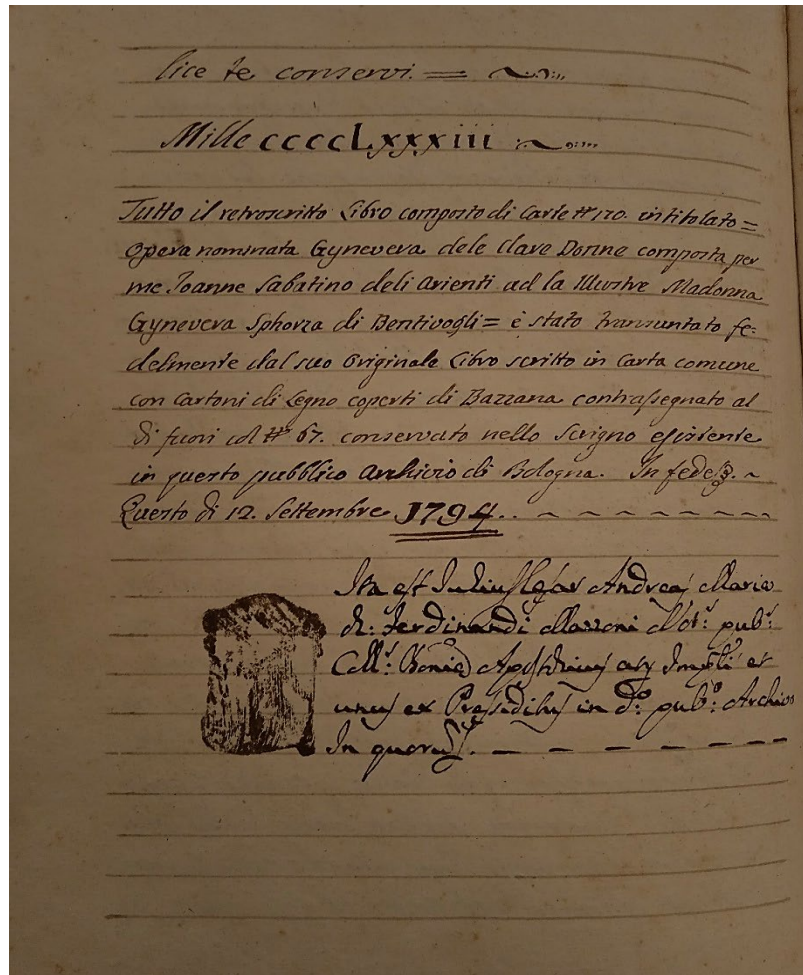 lice te conservi. =
Mille ccccLxxxiii
Tutto il retroscritto Libro composto di Carte # 170. intitolato =
Opera nominata Gynevera dele clare Donne composta per
me Joanne Sabatino deli Arienti ad la Illustre Madonna
Gynevera Sphorza di Bentivogli = è stato transuntato fe=
delmente dal suo Originale Libro scritto in Carta comune
con Cartoni di Legno coperti di Bazzana contrassegnato al
di fuori col # 67. conservato nello Scrigno esistente
in questo pubblico Archivio di Bologna. In fede
Questo dì 12. Settembre 1794.
Ita est Julius Cesar Andreas Maria
q: Ferdinandi Not: pub:
Coll: Bonie Apostolicus
unus ex Presidibus in d.° pub.° Archivo
In quorum